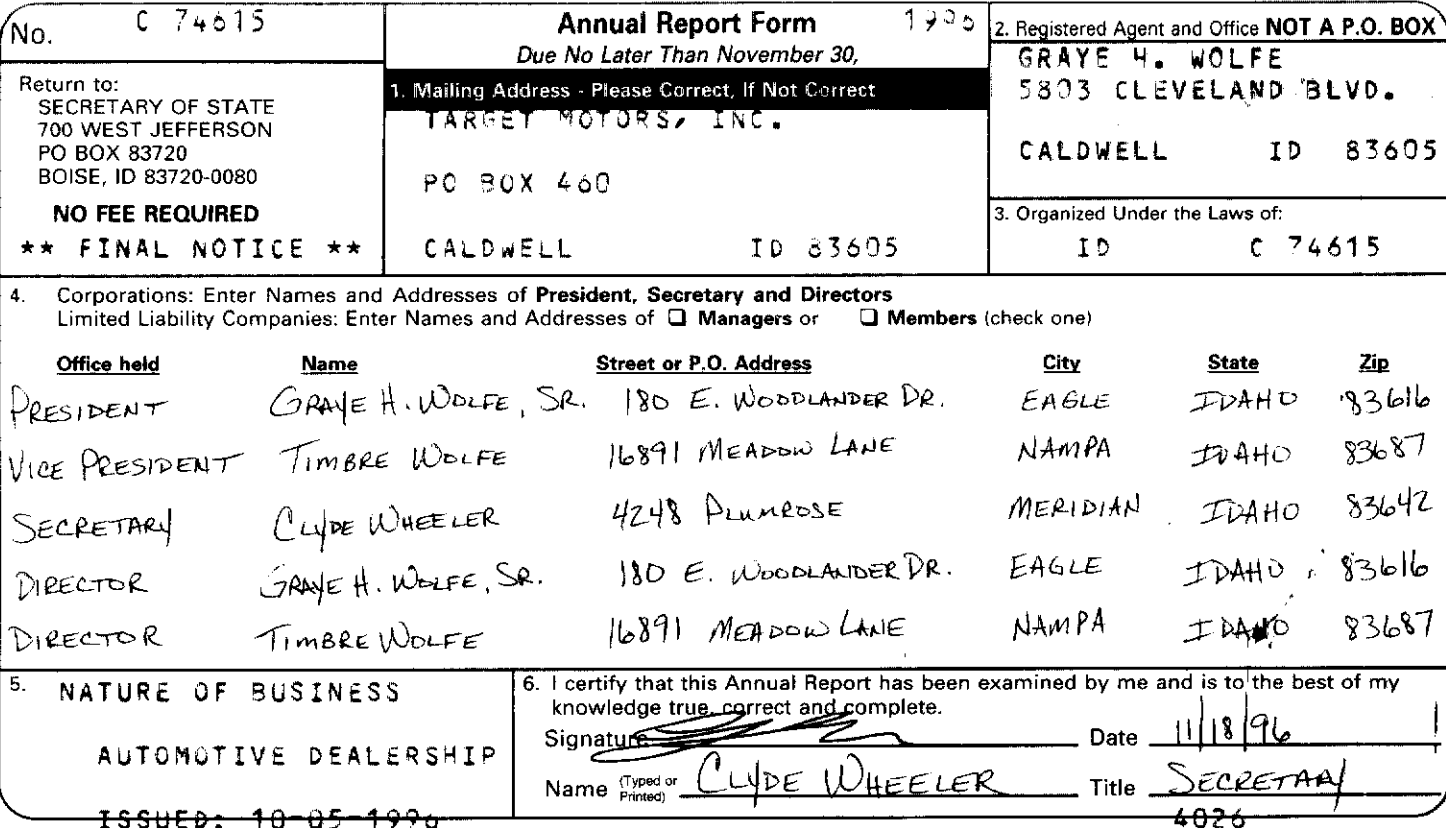 No. C 74615
Annual Report Form 1996
Due No Later Than November 30,
Return to:
SECRETARY OF STATE
700 WEST JEFFERSON
PO BOX 83720
BOISE, ID 83720-0080
NO FEE REQUIRED
** FINAL NOTICE **
1. Mailing Address - Please Correct, If Not Correct
TARGET MOTORS, INC.
PO BOX 460
CALDWELL ID 83605
2. Registered Agent and Office NOT A P.O. BOX
GRAYE H. WOLFE
5803 CLEVELAND BLVD.
CALDWELL ID 83605
3. Organized Under the Laws of:
ID C 74615
4. Corporations: Enter Names and Addresses of President, Secretary and Directors
Limited Liability Companies: Enter Names and Addresses of ❑ Managers or ❑ Members (check one)
Office held Name Street or P.O. Address City State Zip
PRESIDENT GRAYE H. WOLFE, SR. 180 E. WOODLANDER DR. EAGLE IDAHO 83616
VICE PRESIDENT TIMBRE WOLFE 16891 MEADOW LANE NAMPA IDAHO 83687
SECRETARY CLYDE WHEELER 4248 PLUMROSE MERIDIAN IDAHO 83642
DIRECTOR GRAYE H. WOLFE, SR. 180 E. WOODLANDER DR. EAGLE IDAHO 83616
DIRECTOR TIMBRE WOLFE 16891 MEADOW LANE NAMPA IDAHO 83687
5. NATURE OF BUSINESS
AUTOMOTIVE DEALERSHIP
ISSUED: 10-05-1996
6. I certify that this Annual Report has been examined by me and is to the best of my
knowledge true, correct and complete.
Signature Date 11/18/96
Name (Typed or Printed) CLYDE WHEELER Title SECRETARY
4026